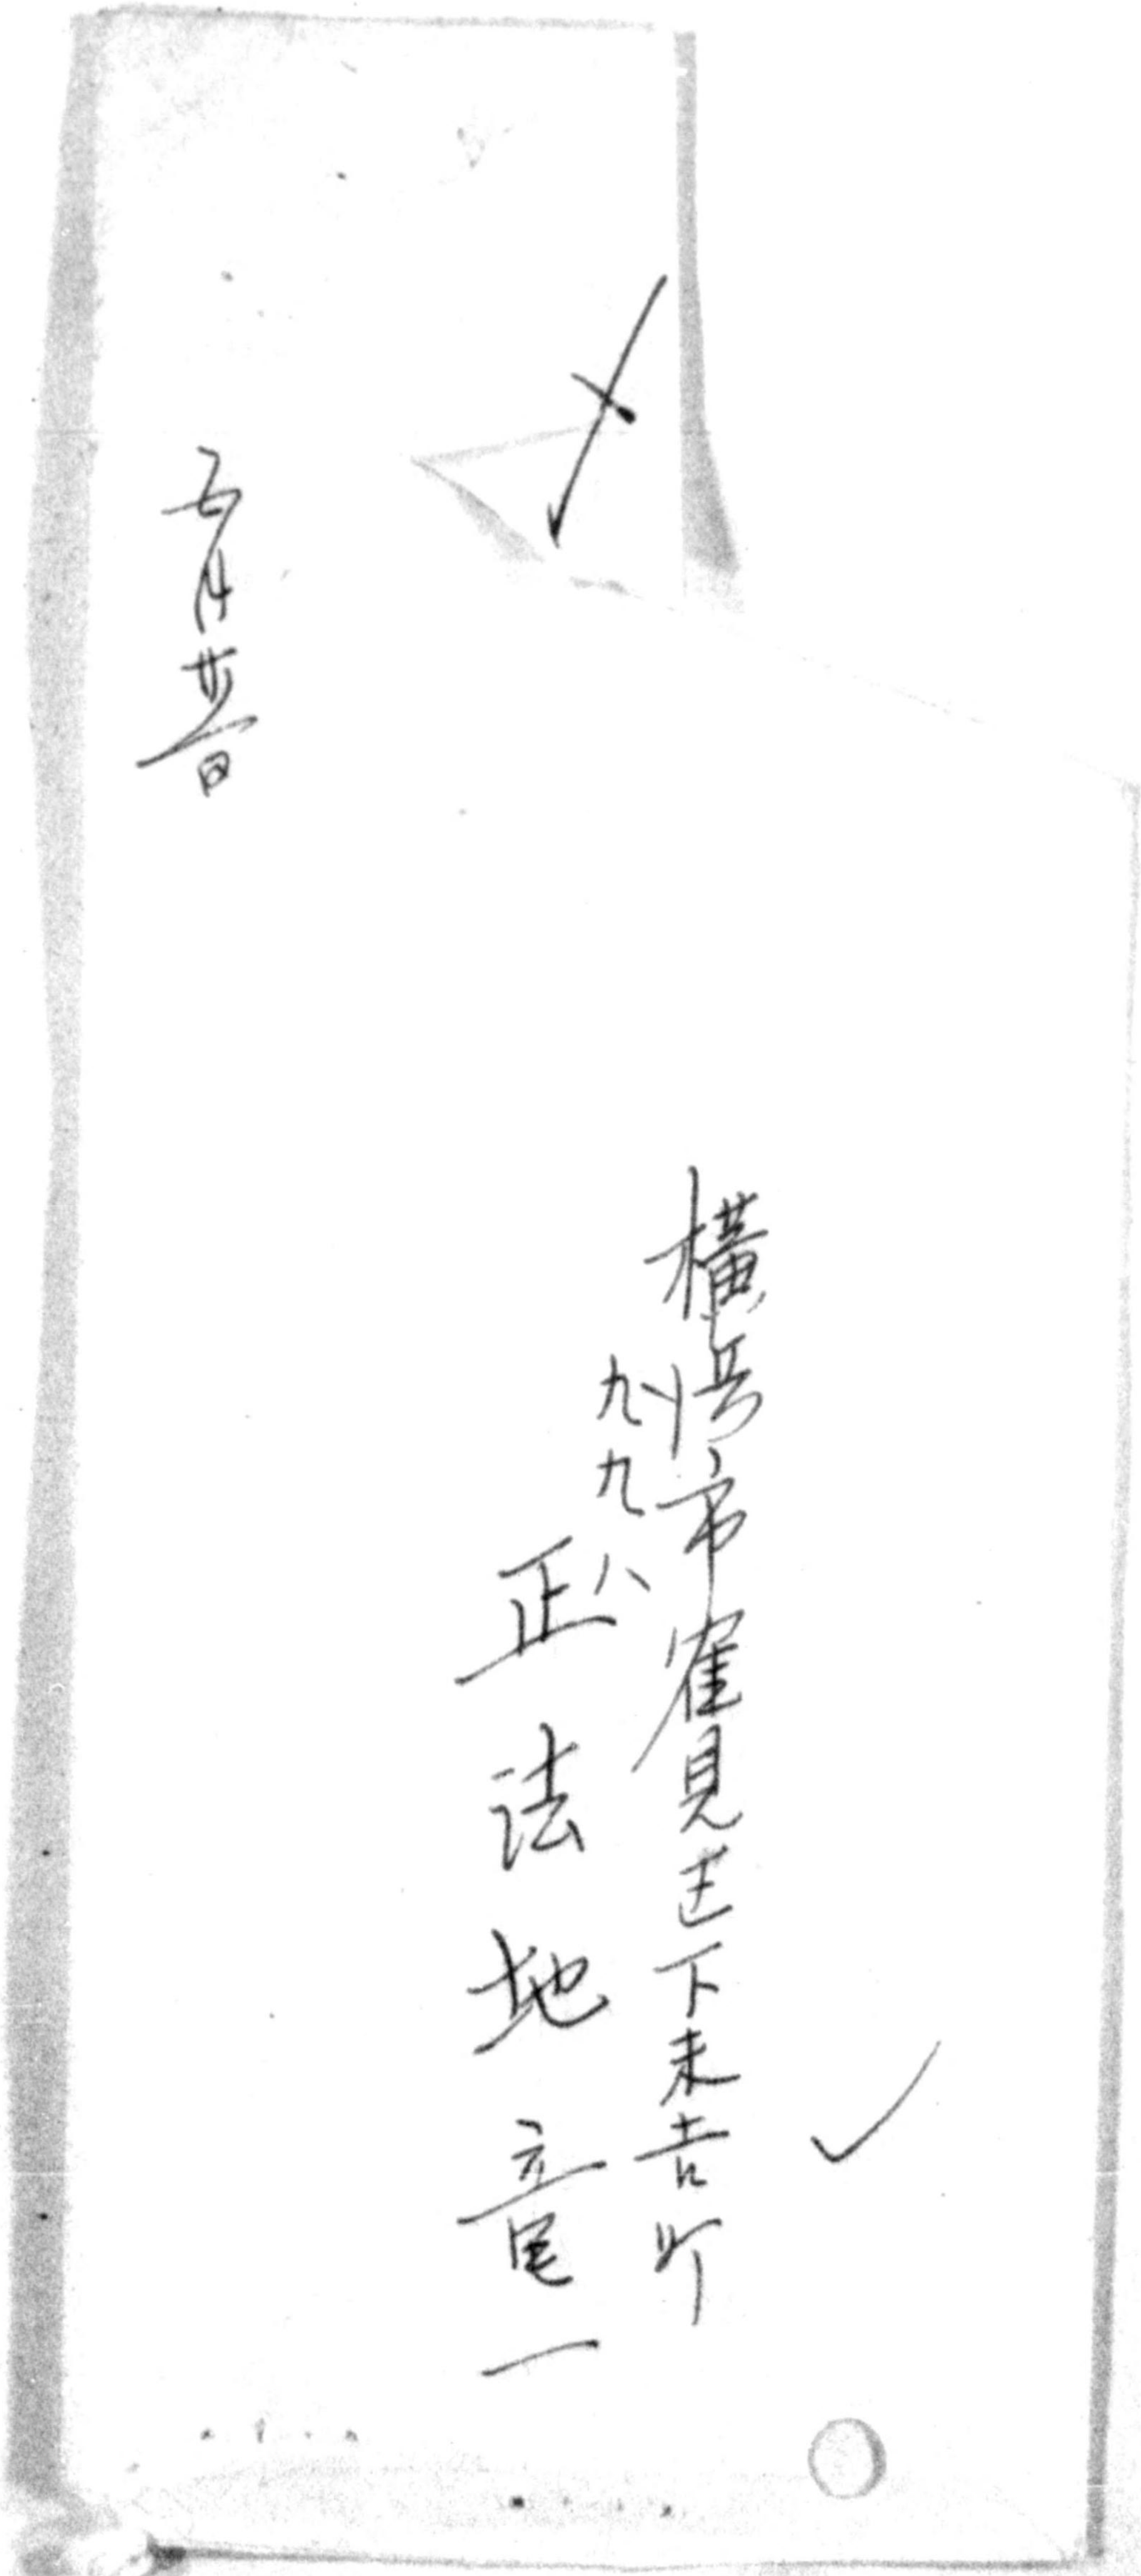 〆
横浜市鶴見区下末吉町
九九八
正法地竜一
五月廿一日